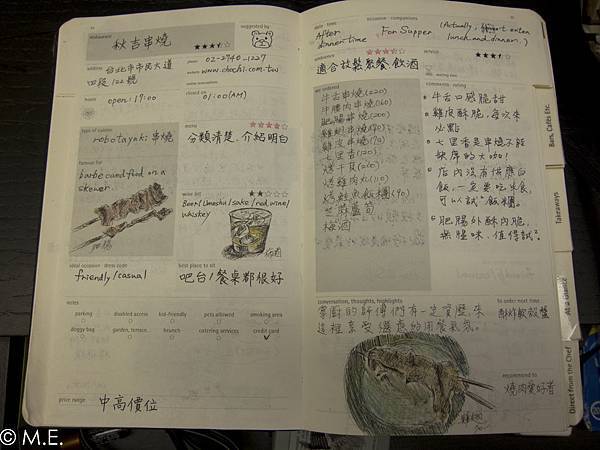 restaurant
秋吉串燒
suggested by
address
台北市市民大道
四段122號
phone
02-2740-1227
website
www.chochi.com.tw
hours
open: 17:00
closed on
01:00(AM)
type of cuisine
robotayaki 串燒
menu
分類清楚、介紹明白
famous for
barbecued food on a
skewer.
wine list
Beer / Umeshu / sake / red, wine /
whiskey
梅酒
ideal occasion · dress code
friendly / casual
best place to sit
吧台 / 餐桌都很好
notes
parking
disabled access
kid-friendly
pets allowed
smoking area
doggy bag
garden, terrace...
brunch
catering services
credit card
price range
中高價位
date · time
After
dinner time
occasion · companions
For Supper
(Actually,
eaten
lunch and dinner.)
ambience
適合放鬆聚餐飲酒
service
waiting time
we ordered
牛舌串燒(220)
牛腰肉串燒(160)
肥腸串燒(200)
雞皮串燒(70)
七里香(120)
烤干貝(220)
烤雞肉丸(110)
烤鮭魚飯糰(90)
芝麻蘆筍
梅酒
comments · rating
牛舌口感脆甜
雞皮酥脆,每次來
必點
七里香是串燒不能
缺席的大咖!
店內沒有供應白
飯,一定要吃米食,
可以試試飯糰。
肥腸外酥內脆,
無腥味,值得試試。
conversation, thoughts, highlights
掌廚的師傅們有一定資歷,來
這裡享受
用餐氣氛。
to order next time
酥炸軟殼蟹
recommended to
燒肉愛好者
Bars, Cafés Etc.
Takeaways
At a Glance
Direct from the Chef
© M.E.